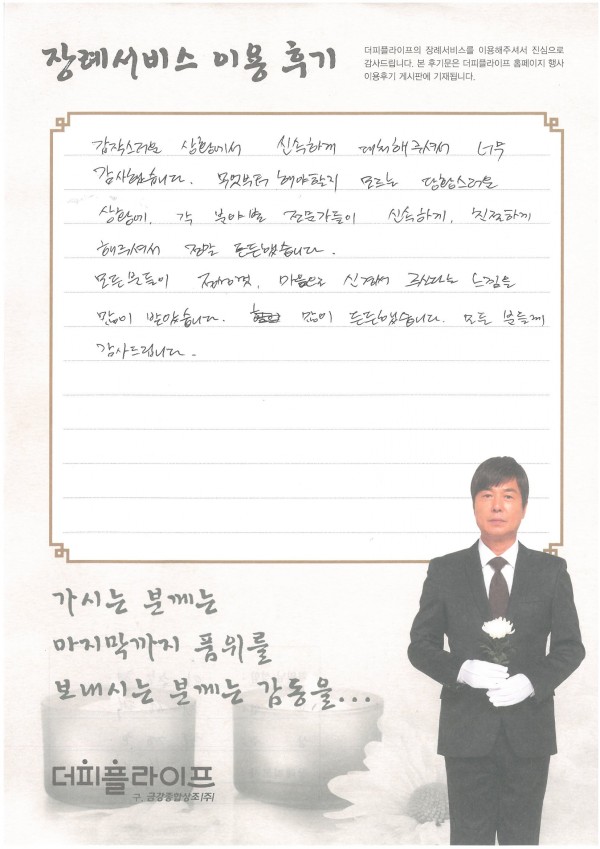 장례서비스 이용 후기
더피플라이프의 장례서비스를 이용해주셔서 진심으로
감사드립니다. 본 후기문은 더피플라이프 홈페이지 행사
이용후기 게시판에 기재됩니다.
갑작스러운 상황에서 신속하게 대처해주셔서 너무
감사했습니다. 무엇부터 해야할지 모르는 당황스러운
상황에, 각 분야별 전문가들이 신속하게, 친절하게
해주셔서 정말 든든했습니다.
모든분들이 마음으로 신경써 주신다는 느낌을
많이 받았습니다. 많이 든든했습니다. 모든 분들께
감사드립니다.
가시는 분께는
마지막까지 품위를
보내시는 분께는 감동을...
더피플라이프
구. 금강종합상조(주)